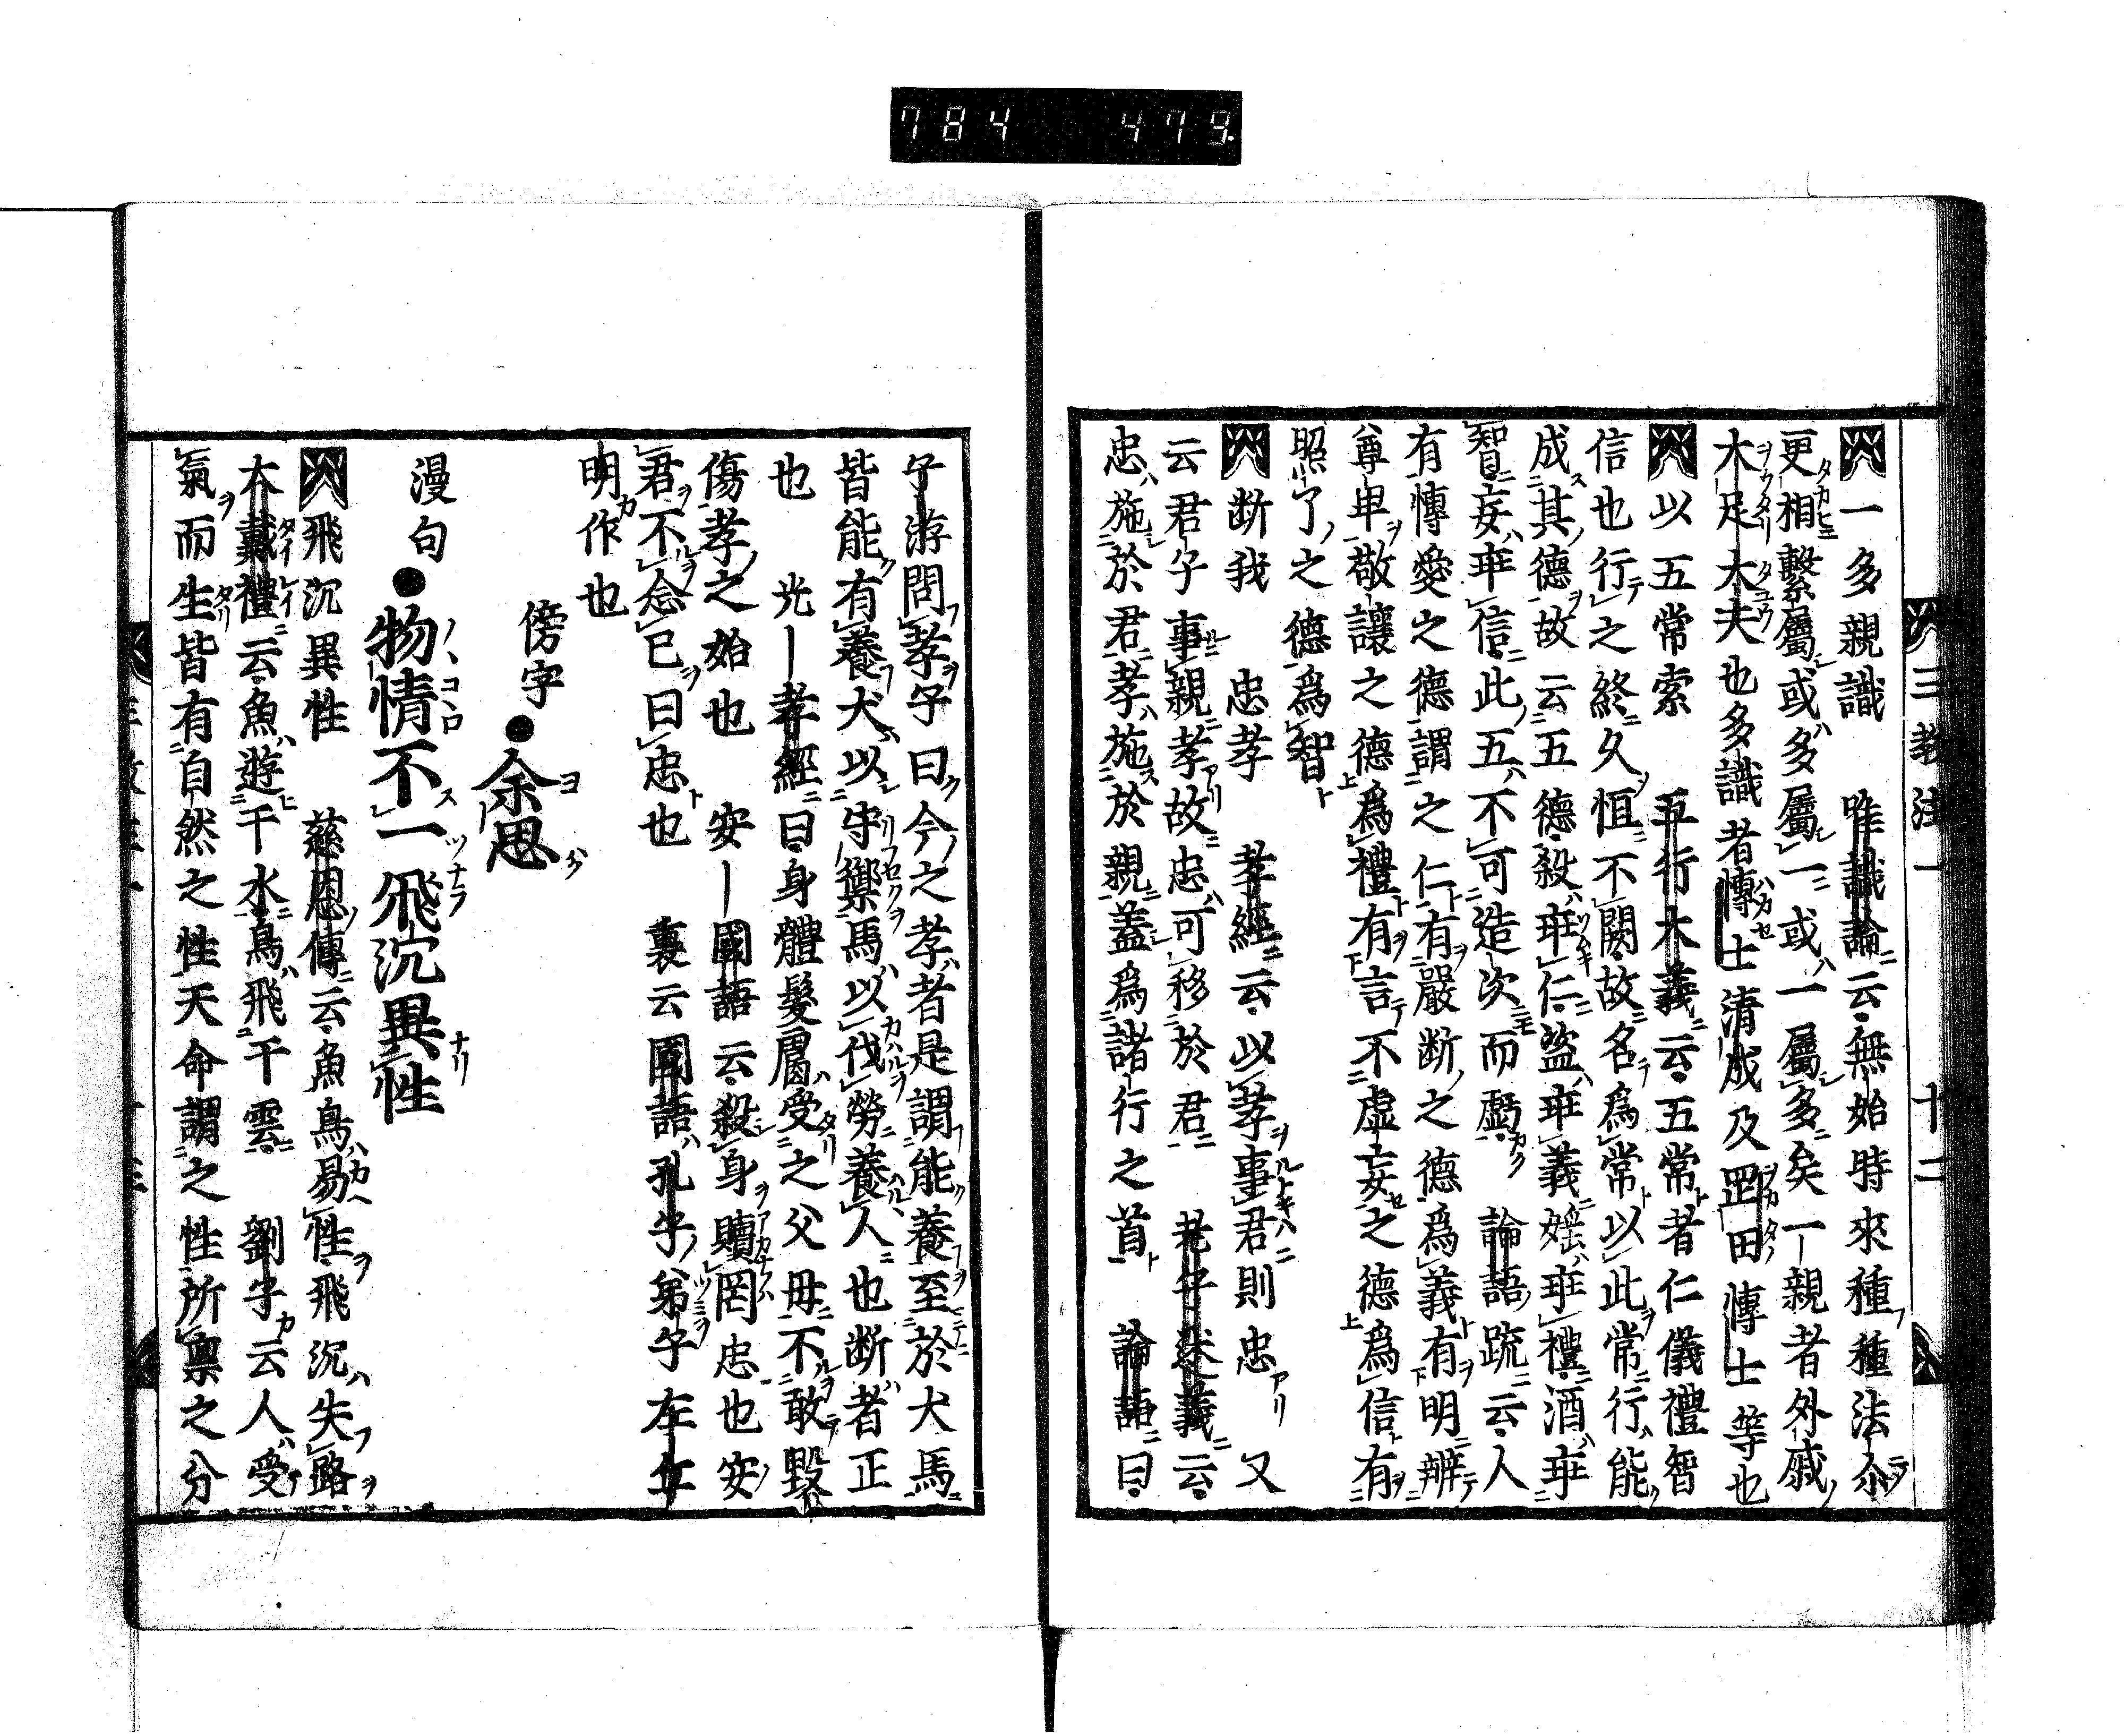 784 479.
三教注一 十二
一多親識 唯識論云無始時來種種法尒
更相繫屬或多屬一或一屬多矣一親者外戚
大足大夫也多識者博士清成及罡田博士等也
以五常索 五行大義云五常者仁儀禮智
信也行之終久恒不闕故名爲常以此常行能
成其德故云五德殺乖仁盜乖義婬乖禮酒乖
智妄乖信此五不可造次而虧 論語疏云人
有博愛之德謂之仁有嚴断之德爲義有明辨
尊卑敬讓之德爲禮有言不虛妄之德爲信有
照了之德爲智
断我 忠孝 孝經云以孝事君則忠 又
云君子事親孝故忠可移於君 孝子述義云
忠施於君孝施於親蓋爲諸行之首 論語曰
子游問孝子曰今之孝者是謂能養至於犬馬
皆能有養犬以守禦馬以代勞養人也断者正
也 光―孝經曰身體髮膚受之父母不敢毀
傷孝之始也 安―國語云殺身贖罔忠也安
君不念已曰忠也 裏云國語孔子弟子左丘
明作也
傍字●余思
漫句●物情不一飛沉異性
飛沉異性 慈恩傳云魚鳥易性飛沉失路
大戴禮云魚遊于水鳥飛于雲 劉子云人受
氣而生皆有自然之性天命謂之性所禀之分